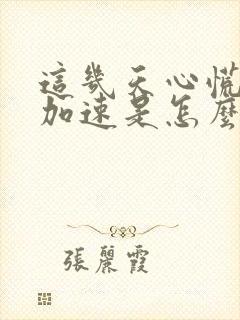 這幾天心慌
加速是怎麼
張麗霞